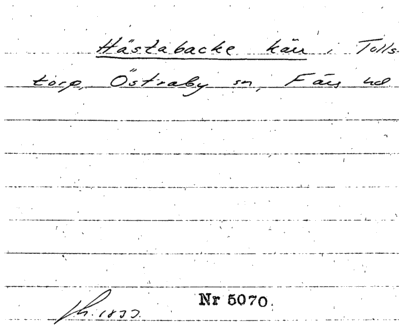 Hästabacke kärr i Tolls-
torp, Östraby sn, Färs hd
Nr 5070.